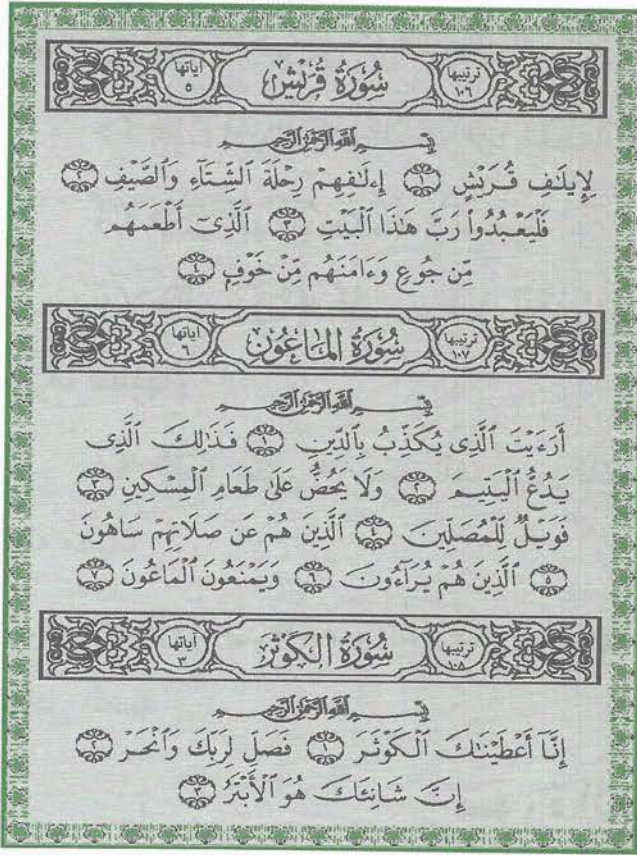 ترتيبها ١٠٦ سُورَةُ قُرَيْشٍ آياتها ٥
بِسْمِ اللَّهِ الرَّحْمَٰنِ الرَّحِيمِ
لِإِيلَـٰفِ قُرَيْشٍ ١ إِۦلَـٰفِهِمْ رِحْلَةَ ٱلشِّتَآءِ وَٱلصَّيْفِ ٢
فَلْيَعْبُدُوا۟ رَبَّ هَـٰذَا ٱلْبَيْتِ ٣ ٱلَّذِىٓ أَطْعَمَهُم
مِّن جُوعٍ وَءَامَنَهُم مِّنْ خَوْفٍۭ ٤
ترتيبها ١٠٧ سُورَةُ المَاعُونِ آياتها ٦
بِسْمِ اللَّهِ الرَّحْمَٰنِ الرَّحِيمِ
أَرَءَيْتَ ٱلَّذِى يُكَذِّبُ بِٱلدِّينِ ١ فَذَٰلِكَ ٱلَّذِى
يَدُعُّ ٱلْيَتِيمَ ٢ وَلَا يَحُضُّ عَلَىٰ طَعَامِ ٱلْمِسْكِينِ ٣
فَوَيْلٌ لِّلْمُصَلِّينَ ٤ ٱلَّذِينَ هُمْ عَن صَلَاتِهِمْ سَاهُونَ
٥ ٱلَّذِينَ هُمْ يُرَآءُونَ ٦ وَيَمْنَعُونَ ٱلْمَاعُونَ ٧
ترتيبها ١٠٨ سُورَةُ الكَوْثَرِ آياتها ٣
بِسْمِ اللَّهِ الرَّحْمَٰنِ الرَّحِيمِ
إِنَّآ أَعْطَيْنَـٰكَ ٱلْكَوْثَرَ ١ فَصَلِّ لِرَبِّكَ وَٱنْحَرْ ٢
إِنَّ شَانِئَكَ هُوَ ٱلْأَبْتَرُ ٣